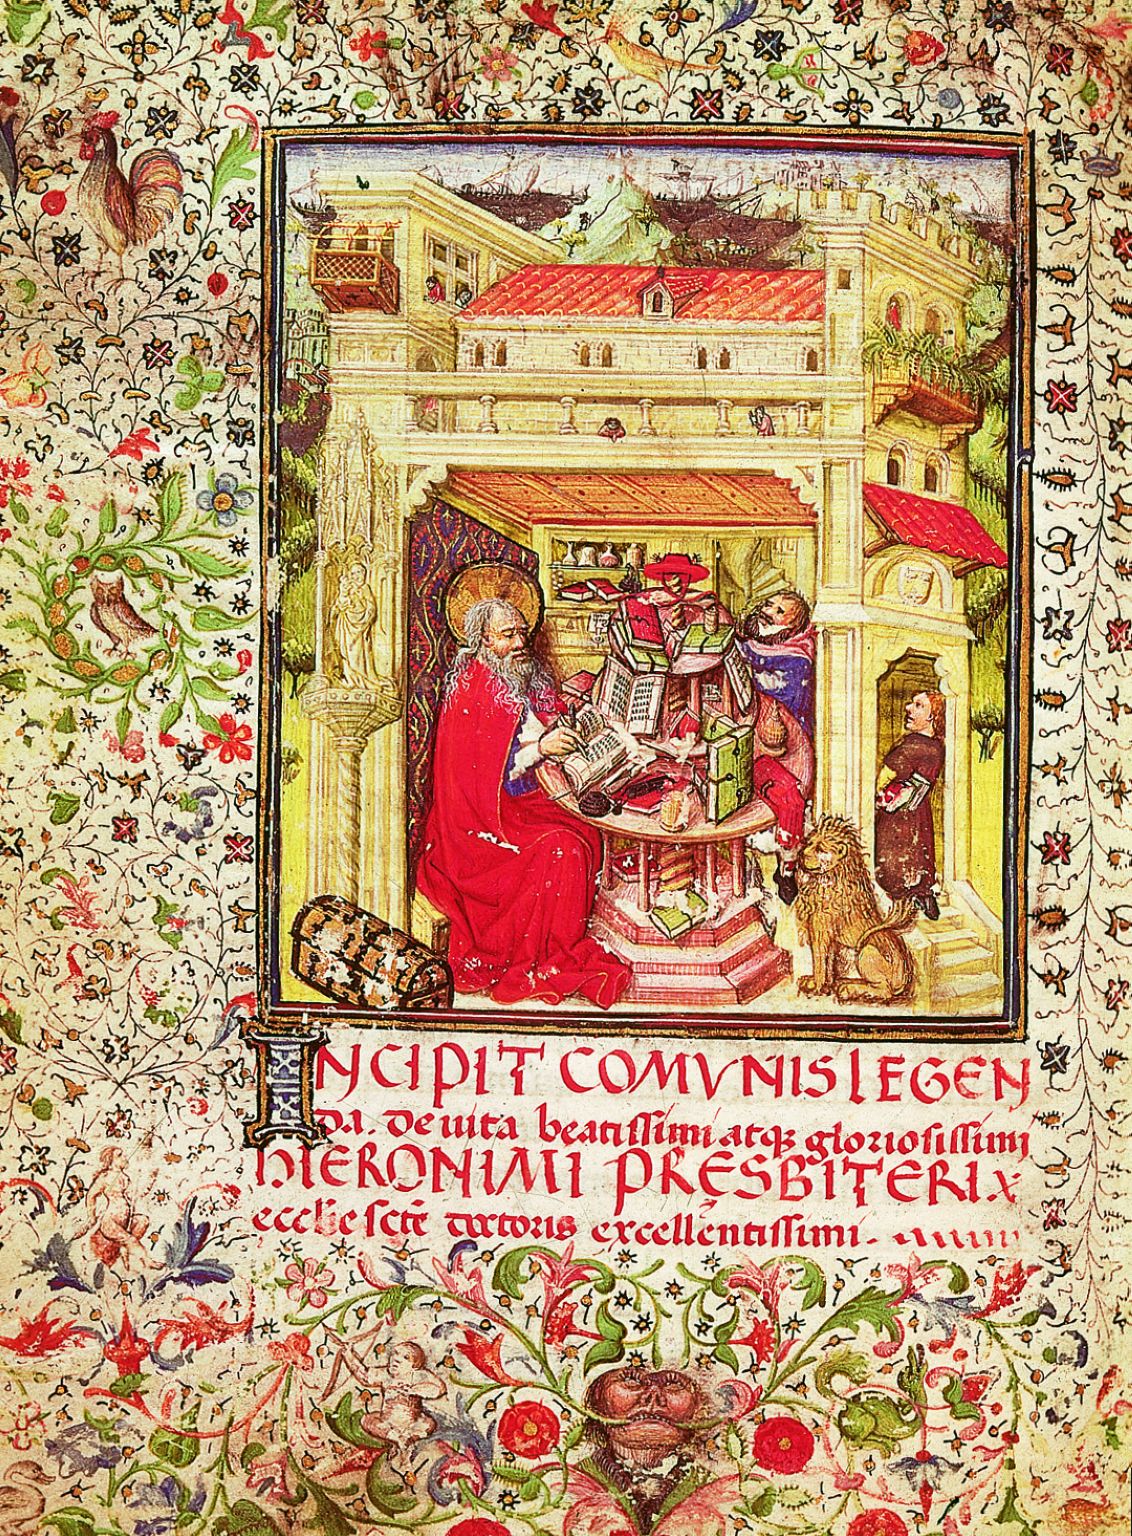 INCIPIT COMVNIS LEGEN
DA. De uita beatissimi atqꝫ gloriosissimi
HIERONIMI PRESBITERI. x
eccl̅ie sctē doctoris excell̅entissimi.